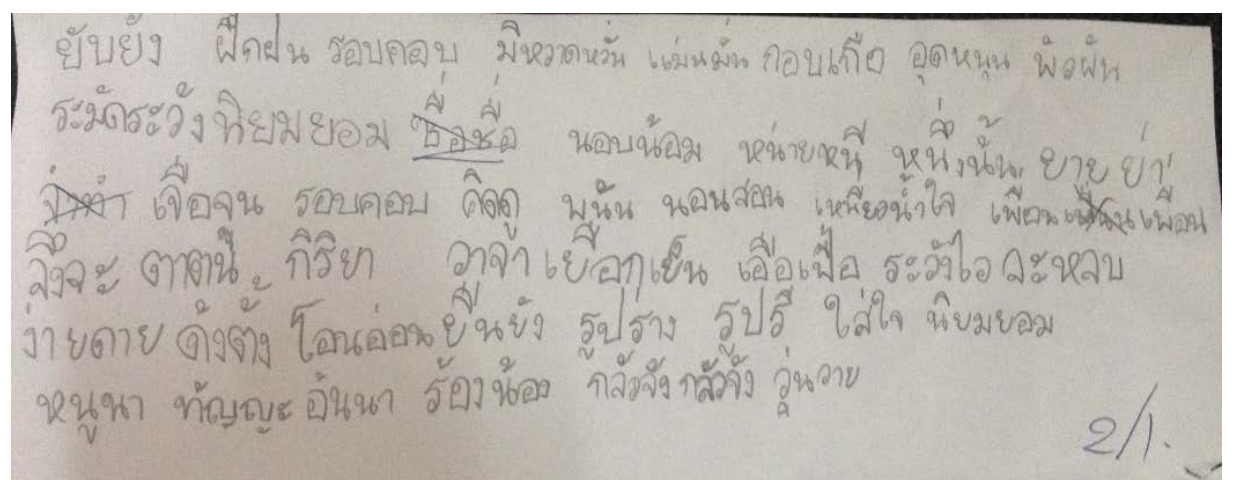 ยับยั้ง ฝึกฝน รอบคอบ มีหวาดหวั่น แม่นมั่น กอบเกื้อ อุดหนุน พัวพัน
ระมัดระวัง นิยมยอม ซื่อชื่อ นอบน้อม หน่ายหนี หนึ่งนั้น ยาย ย่า
เจือจน รอบคอบ คิดดู พนัน นอนสอน เหนี่ยวน้ำใจ เพื่อน เพื่อน
จึงจะ ตาตานี้ กิริยา วาจา เยือกเย็น เอื้อเฟื้อ ระวังไอ ละหลบ
ง่ายดาย ดังตั้ง โอนอ่อน ยืนยัง รูปร่าง รูปรี ใส่ใจ นิยมยอม
หนูนา ทัญญะ อันนา ร้องน้อง กลัวจัง กลัวจัง วุ่นวาย
2/1.